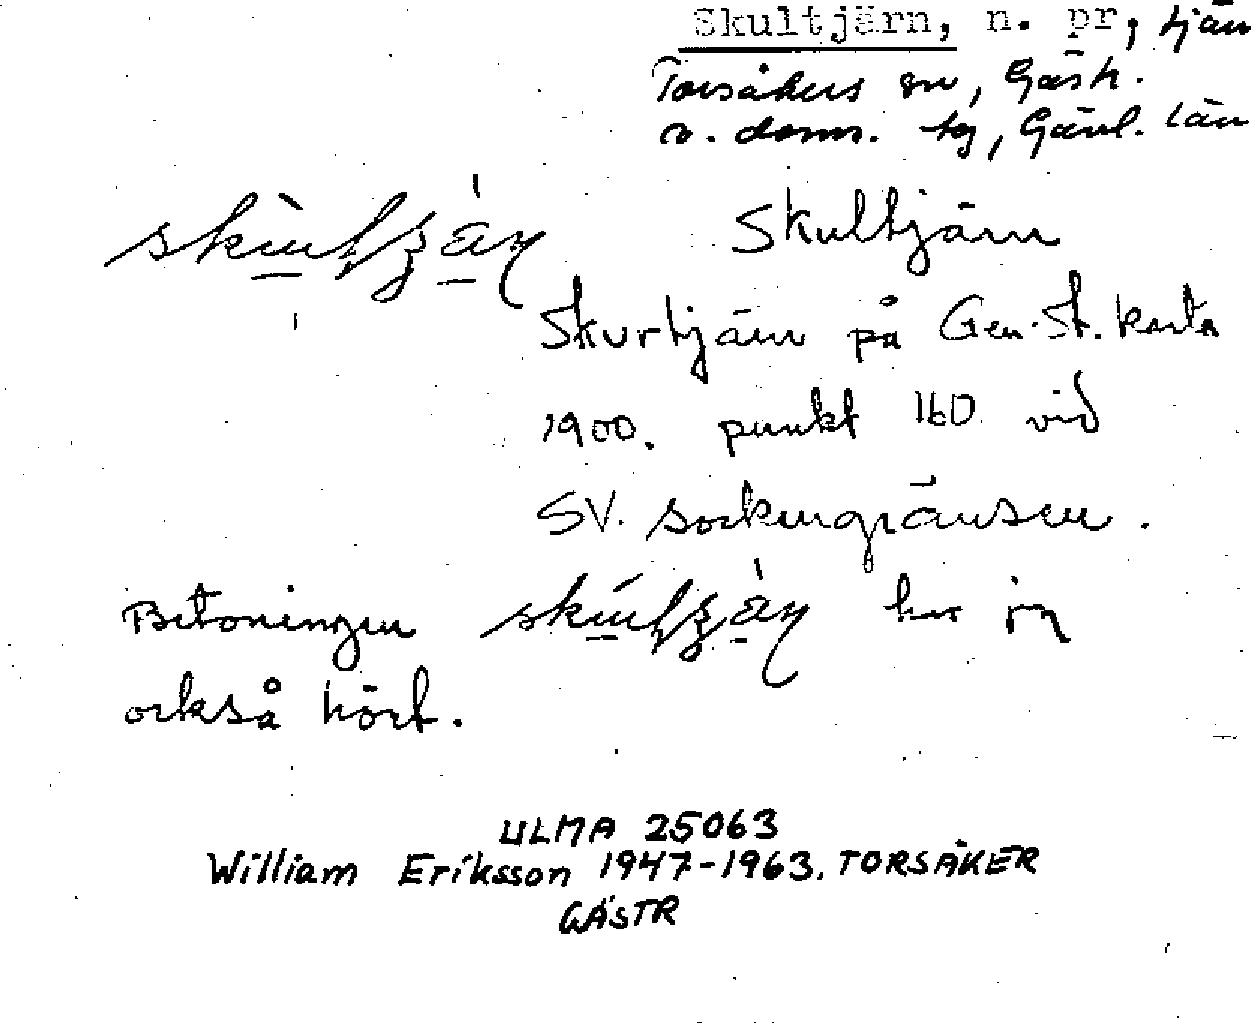 Skultjärn, n. pr, tjärn
Torsåkers sn, Gästr.
v. doms. tg, Gävl. län
Skultjärn
Skurtjärn på Gen. St. karta
1900. punkt 160 vid
SV. sockengränsen.
Betoningen har jag
också hört.
ULMA 25063
William Eriksson 1947-1963. TORSÅKER
GÄSTR